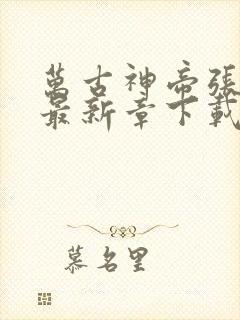 萬古神帝張
最新章下載
慕名里